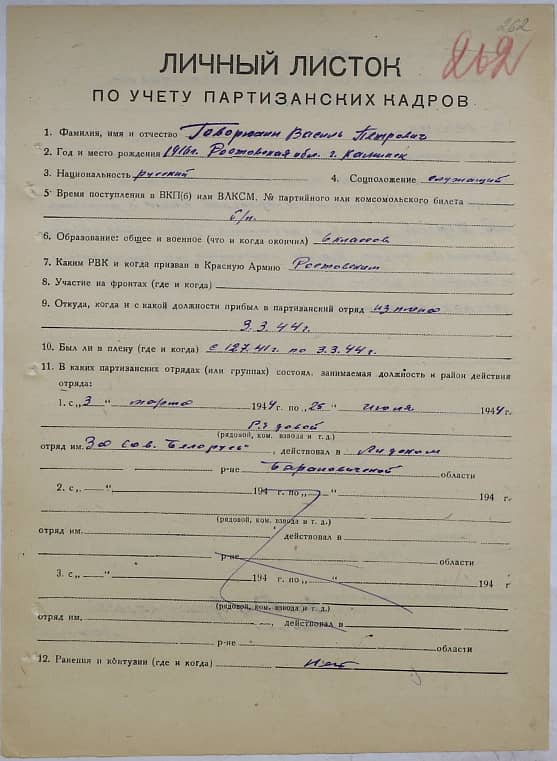 262
262
ЛИЧНЫЙ ЛИСТОК
ПО УЧЕТУ ПАРТИЗАНСКИХ КАДРОВ
1. Фамилия, имя и отчество Василь Петрович
2. Год и место рождения 1916г. Ростовская обл. г.
3. Национальность русский 4. Соцположение служащий
5. Время поступления в ВКП(б) или ВЛКСМ, № партийного или комсомольского билета
б/п.
6. Образование: общее и военное (что и когда окончил) 6 классов
7. Каким РВК и когда призван в Красную Армию Ростовским
8. Участие на фронтах (где и когда)
9. Откуда, когда и с какой должности прибыл в партизанский отряд из плена
3.3.44г.
10. Был ли в плену (где и когда) с 12.7.41г. по 3.3.44г.
11. В каких партизанских отрядах (или группах) состоял, занимаемая должность и район действия
отряда:
1. с „3“ марта 1944 г. по „25“ июля 1944 г.
Рядовой
(рядовой, ком. взвода и т. д.)
отряд им. За Сов. Беларусь", действовал в Лидском
р-не Барановичской области
2. с „ “ 194 г. по „ “ 194 г.
(рядовой, ком. взвода и т. д.)
отряд им. , действовал в
р-не области
3. с „ “ 194 г. по „ “ 194 г
(рядовой, ком. взвода и т. д.)
отряд им. , действовал в
р-не области
12. Ранения и контузии (где и когда) нет